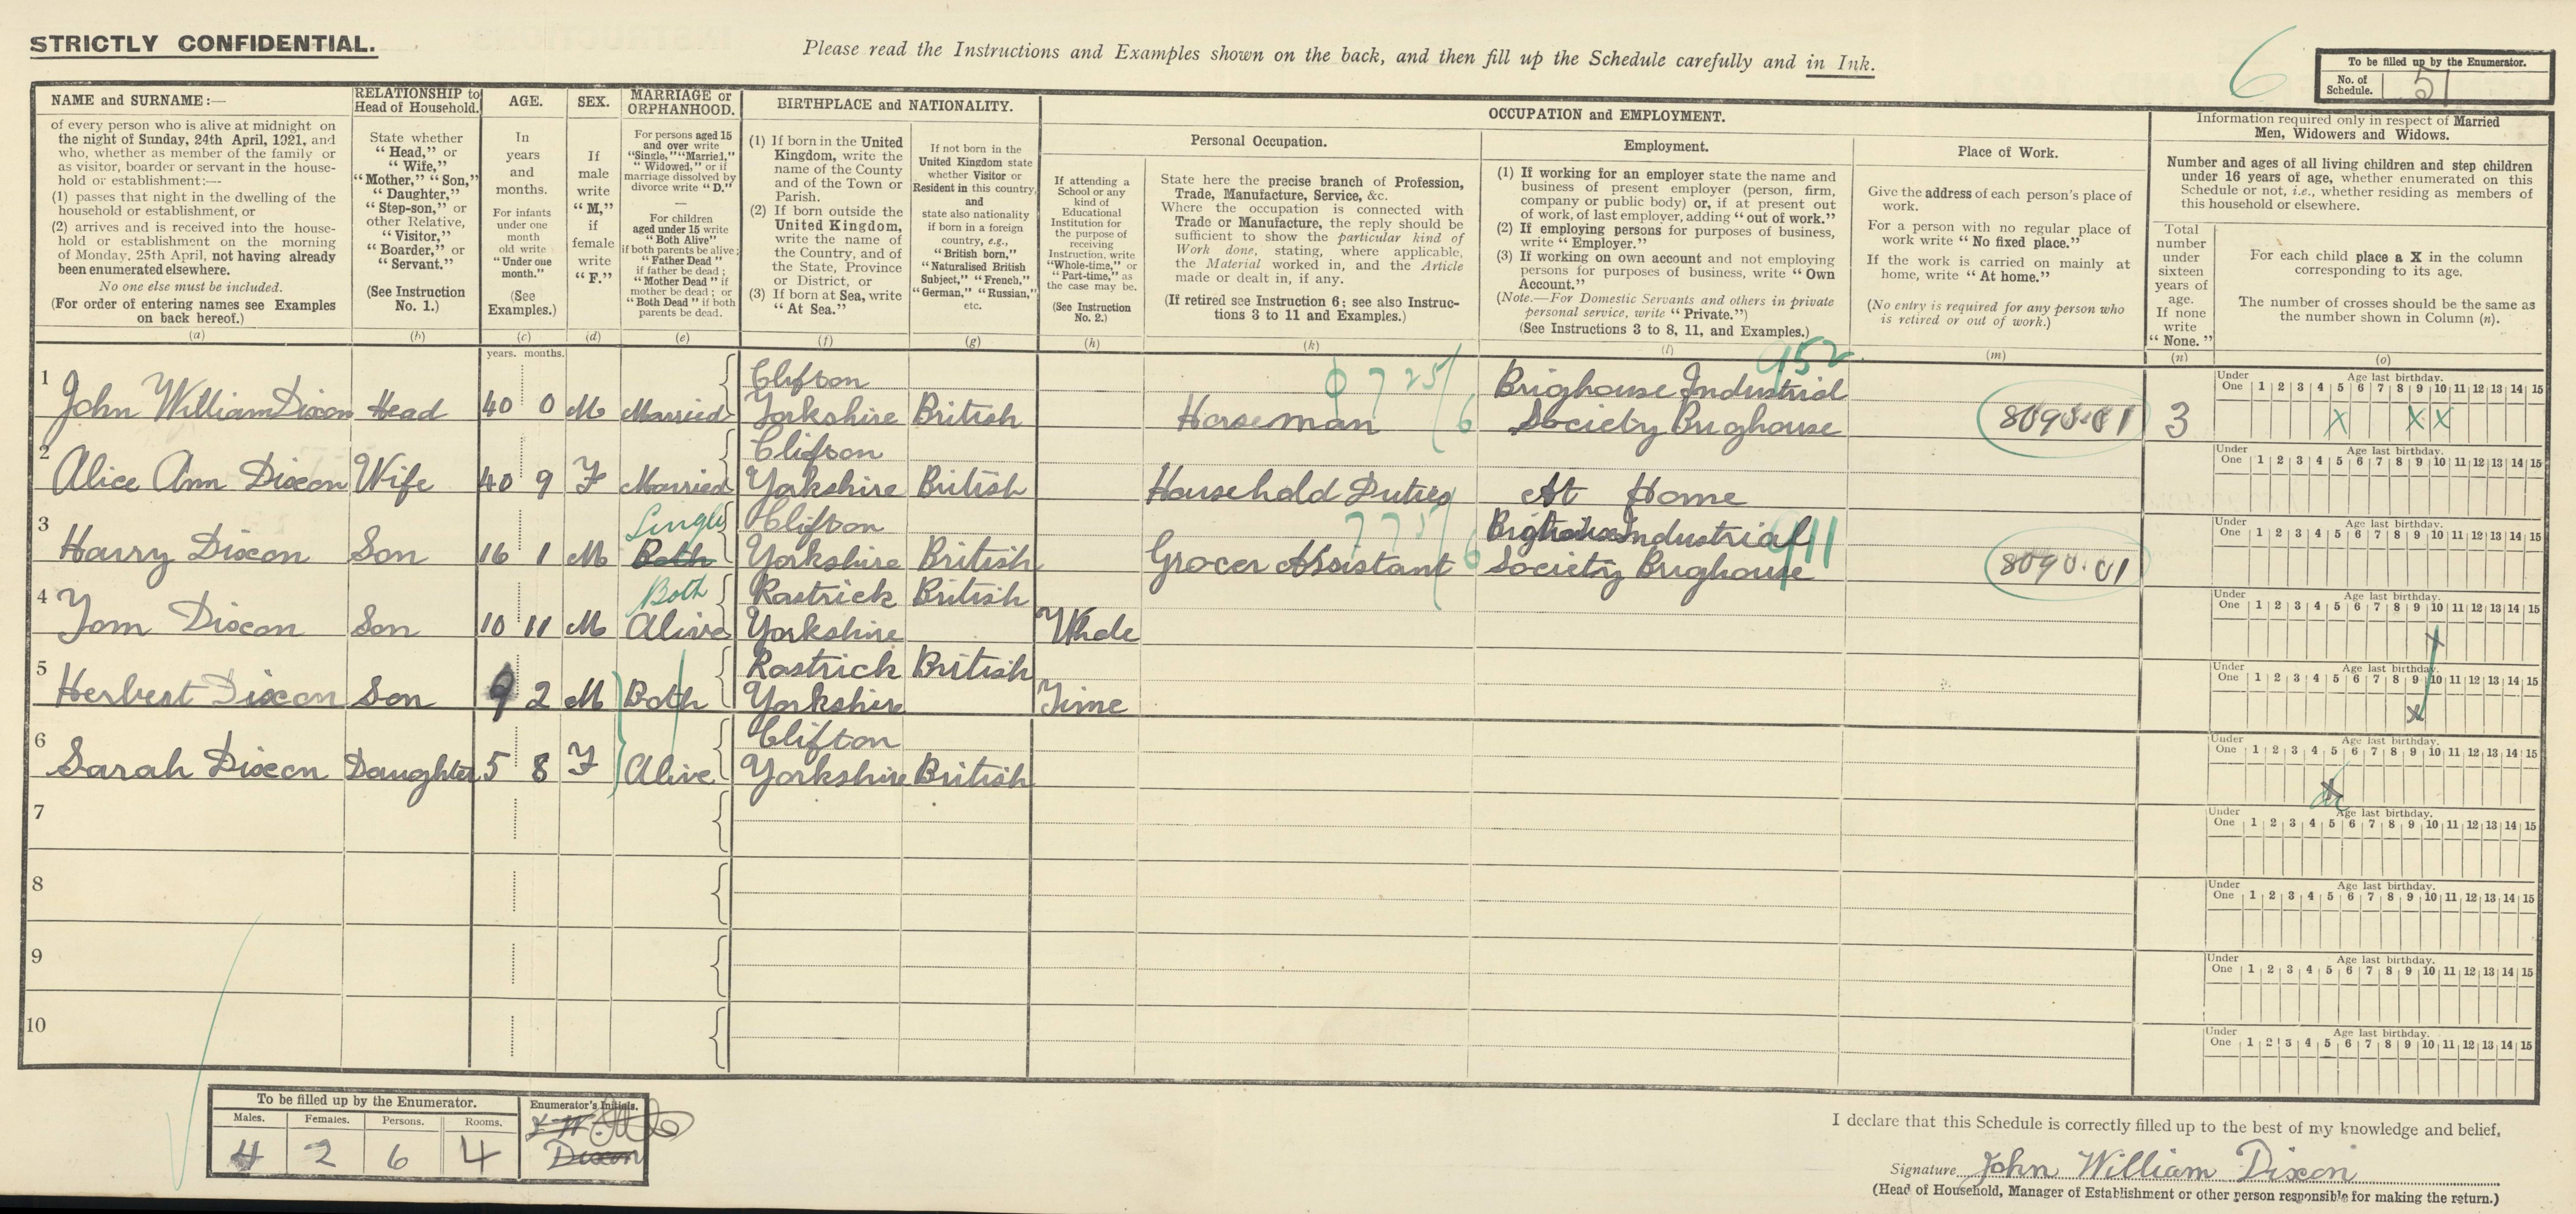 STRICTLY CONFIDENTIAL.
Please read the Instructions and Examples shown on the back, and then fill up the Schedule carefully and in Ink.
6
To be filled up by the Enumerator.
No. of Schedule. 51
NAME and SURNAME:—
of every person who is alive at midnight on
the night of Sunday, 24th April, 1921, and
who, whether as member of the family or
as visitor, boarder or servant in the house-
hold or establishment:—
(1) passes that night in the dwelling of the
household or establishment, or
(2) arrives and is received into the house-
hold or establishment on the morning
of Monday, 25th April, not having already
been enumerated elsewhere.
No one else must be included.
(For order of entering names see Examples
on back hereof.)
(a)
RELATIONSHIP to
Head of Household.
State whether
"Head," or
"Wife,"
"Mother," "Son,"
"Daughter,"
"Step-son," or
other Relative,
"Visitor,"
"Boarder," or
"Servant."
(See Instruction
No. 1.)
(b)
AGE.
In
years
and
months.
For infants
under one
month
old write
"Under one
month."
(See
Examples.)
(c)
SEX.
If
male
write
"M,"
if
female
write
"F."
(d)
MARRIAGE or
ORPHANHOOD.
For persons aged 15
and over write
"Single," "Married,"
"Widowed," or if
marriage dissolved by
divorce write "D."
—
For children
aged under 15 write
"Both Alive"
if both parents be alive;
"Father Dead"
if father be dead;
"Mother Dead" if
mother be dead; or
"Both Dead" if both
parents be dead.
(e)
BIRTHPLACE and NATIONALITY.
(1) If born in the United
Kingdom, write the
name of the County
and of the Town or
Parish.
(2) If born outside the
United Kingdom,
write the name of
the Country, and of
the State, Province
or District, or
(3) If born at Sea, write
"At Sea."
(f)
If not born in the
United Kingdom state
whether Visitor or
Resident in this country,
and
state also nationality
if born in a foreign
country, e.g.,
"British born,"
"Naturalised British
Subject," "French,"
"German," "Russian,"
etc.
(g)
OCCUPATION and EMPLOYMENT.
If attending a
School or any
kind of
Educational
Institution for
the purpose of
receiving
Instruction, write
"Whole-time," or
"Part-time," as
the case may be.
(See Instruction
No. 2.)
(h)
Personal Occupation.
State here the precise branch of Profession,
Trade, Manufacture, Service, &c.
Where the occupation is connected with
Trade or Manufacture, the reply should be
sufficient to show the particular kind of
Work done, stating, where applicable,
the Material worked in, and the Article
made or dealt in, if any.
(If retired see Instruction 6; see also Instruc-
tions 3 to 11 and Examples.)
(k)
Employment.
(1) If working for an employer state the name and
business of present employer (person, firm,
company or public body) or, if at present out
of work, of last employer, adding "out of work."
(2) If employing persons for purposes of business,
write "Employer."
(3) If working on own account and not employing
persons for purposes of business, write "Own
Account."
(Note.—For Domestic Servants and others in private
personal service, write "Private.")
(See Instructions 3 to 8, 11, and Examples.)
(l)
Place of Work.
Give the address of each person's place of
work.
For a person with no regular place of
work write "No fixed place."
If the work is carried on mainly at
home, write "At home."
(No entry is required for any person who
is retired or out of work.)
(m)
Information required only in respect of Married
Men, Widowers and Widows.
Number and ages of all living children and step children
under 16 years of age, whether enumerated on this
Schedule or not, i.e., whether residing as members of
this household or elsewhere.
Total
number
under
sixteen
years of
age.
If none
write
"None."
(n)
For each child place a X in the column
corresponding to its age.
The number of crosses should be the same as
the number shown in Column (n).
(o)
years. months.
1 John William Dixon Head 40 0 M Married Clifton Yorkshire British Horseman 6 Brighouse Industrial Society Brighouse 952 8090.01 3
Under One 1 2 3 4 5 6 7 8 9 10 11 12 13 14 15
Age last birthday.
X X X
2 Alice Ann Dixon Wife 40 9 F Married Clifton Yorkshire British Household Duties At Home
Under One 1 2 3 4 5 6 7 8 9 10 11 12 13 14 15
Age last birthday.
3 Harry Dixon Son 16 1 M Single Both Clifton Yorkshire British Grocer Assistant 775/6 Brighouse Industrial Society Brighouse 911 8090.01
Under One 1 2 3 4 5 6 7 8 9 10 11 12 13 14 15
Age last birthday.
4 Tom Dixon Son 10 11 M Both Alive Rastrick Yorkshire British Whole
Under One 1 2 3 4 5 6 7 8 9 10 11 12 13 14 15
Age last birthday.
X
5 Herbert Dixon Son 9 2 M Both Rastrick Yorkshire British Time
Under One 1 2 3 4 5 6 7 8 9 10 11 12 13 14 15
Age last birthday.
X
6 Sarah Dixon Daughter 5 8 F Alive Clifton Yorkshire British
Under One 1 2 3 4 5 6 7 8 9 10 11 12 13 14 15
Age last birthday.
X
7
Under One 1 2 3 4 5 6 7 8 9 10 11 12 13 14 15
Age last birthday.
8
Under One 1 2 3 4 5 6 7 8 9 10 11 12 13 14 15
Age last birthday.
9
Under One 1 2 3 4 5 6 7 8 9 10 11 12 13 14 15
Age last birthday.
10
Under One 1 2 3 4 5 6 7 8 9 10 11 12 13 14 15
Age last birthday.
To be filled up by the Enumerator.
Males. Females. Persons. Rooms.
4 2 6 4
Enumerator's Initials.
Dixon
I declare that this Schedule is correctly filled up to the best of my knowledge and belief,
Signature John William Dixon
(Head of Household, Manager of Establishment or other person responsible for making the return.)